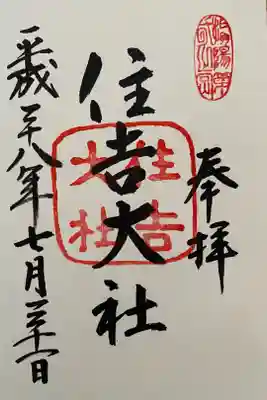 奉拝
住吉大社
住吉
大社
平成二十八年七月三十一日